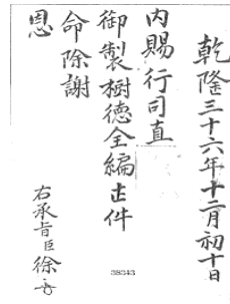 乾隆三十六年十二月初十日
內賜行司直
御製樹德全編壹件
命除謝
恩
右承旨臣徐
38343